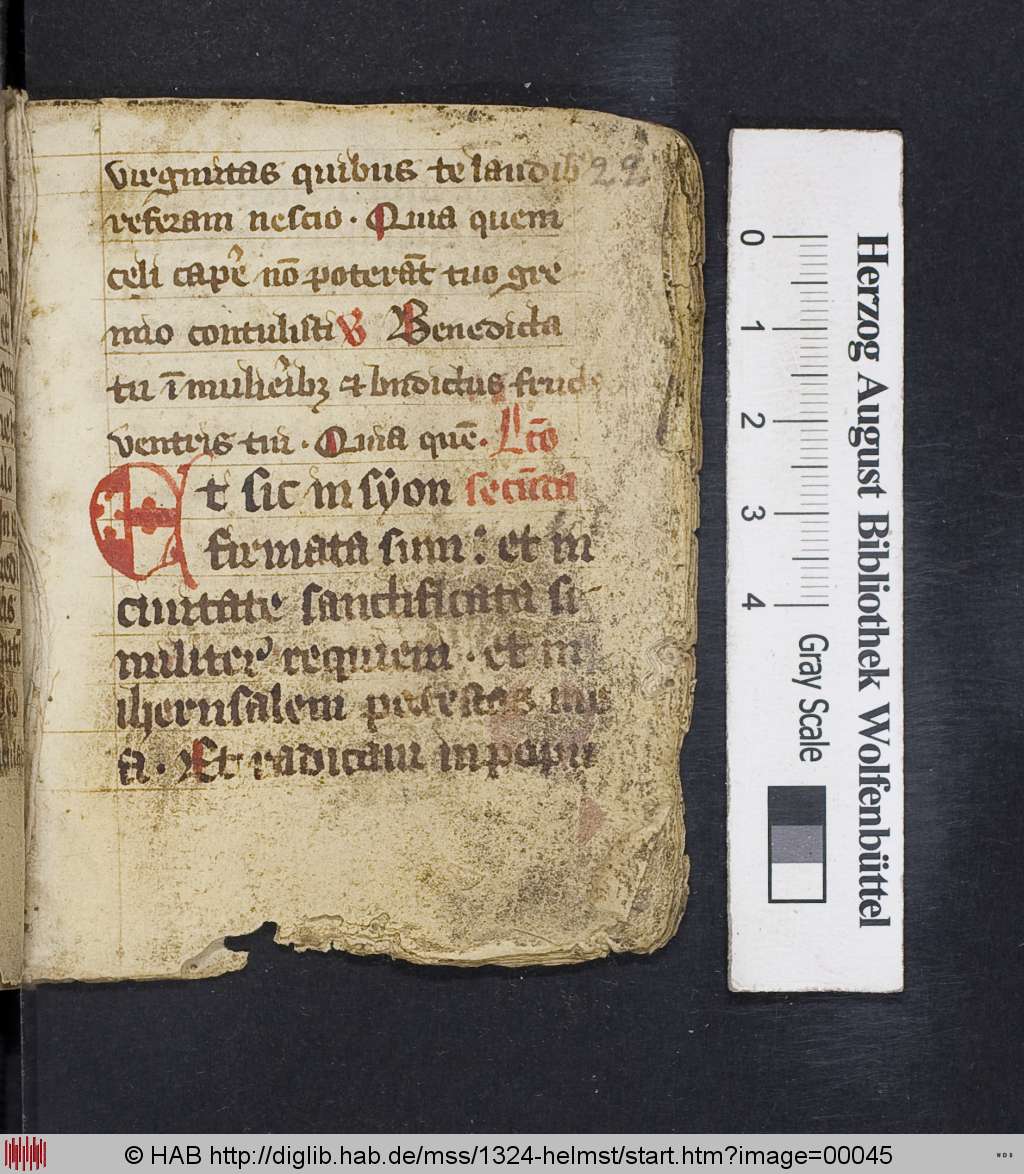 virginitas quibus te laudib 22
referam nescio · Quia quem
celi cap̄e nō poterāt tuo gre
mio contulisti V Benedicta
tu ī mulierib3 ⁊ bn̄dictus fruct
ventris tui · Quia quē · Lc̄o
Et sic in syon secūda
firmata sum : et in
ciuitate sanctificata si
militer requieui · et in
iherusalem potestas me
a · Et radicaui in popu
0 1 2 3 4
Gray Scale
Herzog August Bibliothek Wolfenbüttel
© HAB http://diglib.hab.de/mss/1324-helmst/start.htm?image=00045